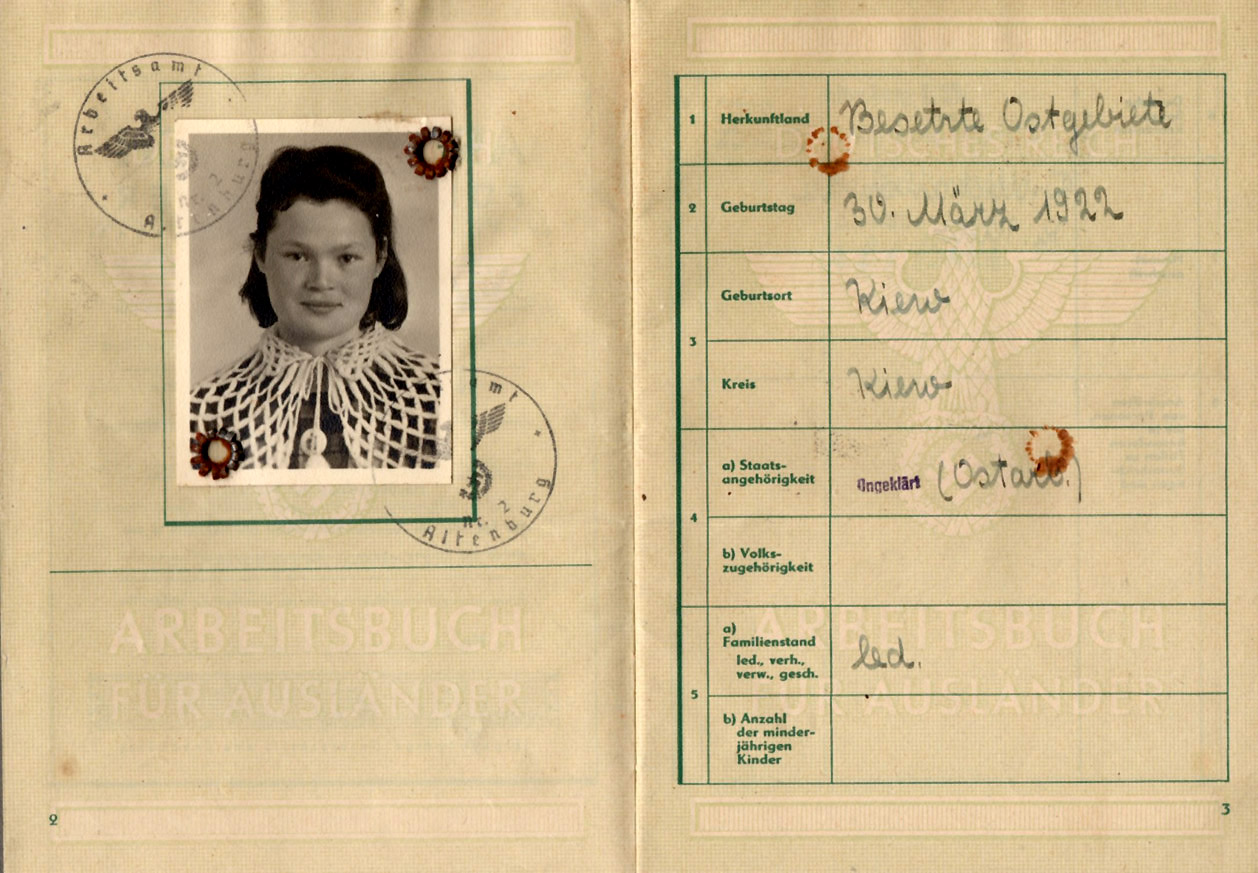 Arbeitsamt
Nr. 2
Altenburg
Arbeitsamt
Nr. 2
Altenburg
ARBEITSBUCH
FÜR AUSLÄNDER
2
DEUTSCHES REICH
1 Herkunftland Besetzte Ostgebiete
2 Geburtstag 30. März 1922
3 Geburtsort Kiew
Kreis Kiew
4 a) Staats-
angehörigkeit Ungeklärt (Ostarb.)
b) Volks-
zugehörigkeit
5 a)
Familienstand
led., verh.,
verw., gesch. led.
b) Anzahl
der minder-
jährigen
Kinder
ARBEITSBUCH
FÜR AUSLÄNDER
3